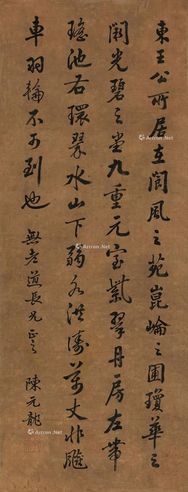 東王公所居在閬風之苑崑崙之圃瓊華之
闕光碧之堂九重元室紫翠丹房左帶
瑤池右環翠水山下弱水洪濤萬丈非飈
車羽輪不可到也
道長兄正之
陳元龍
Artron.Net